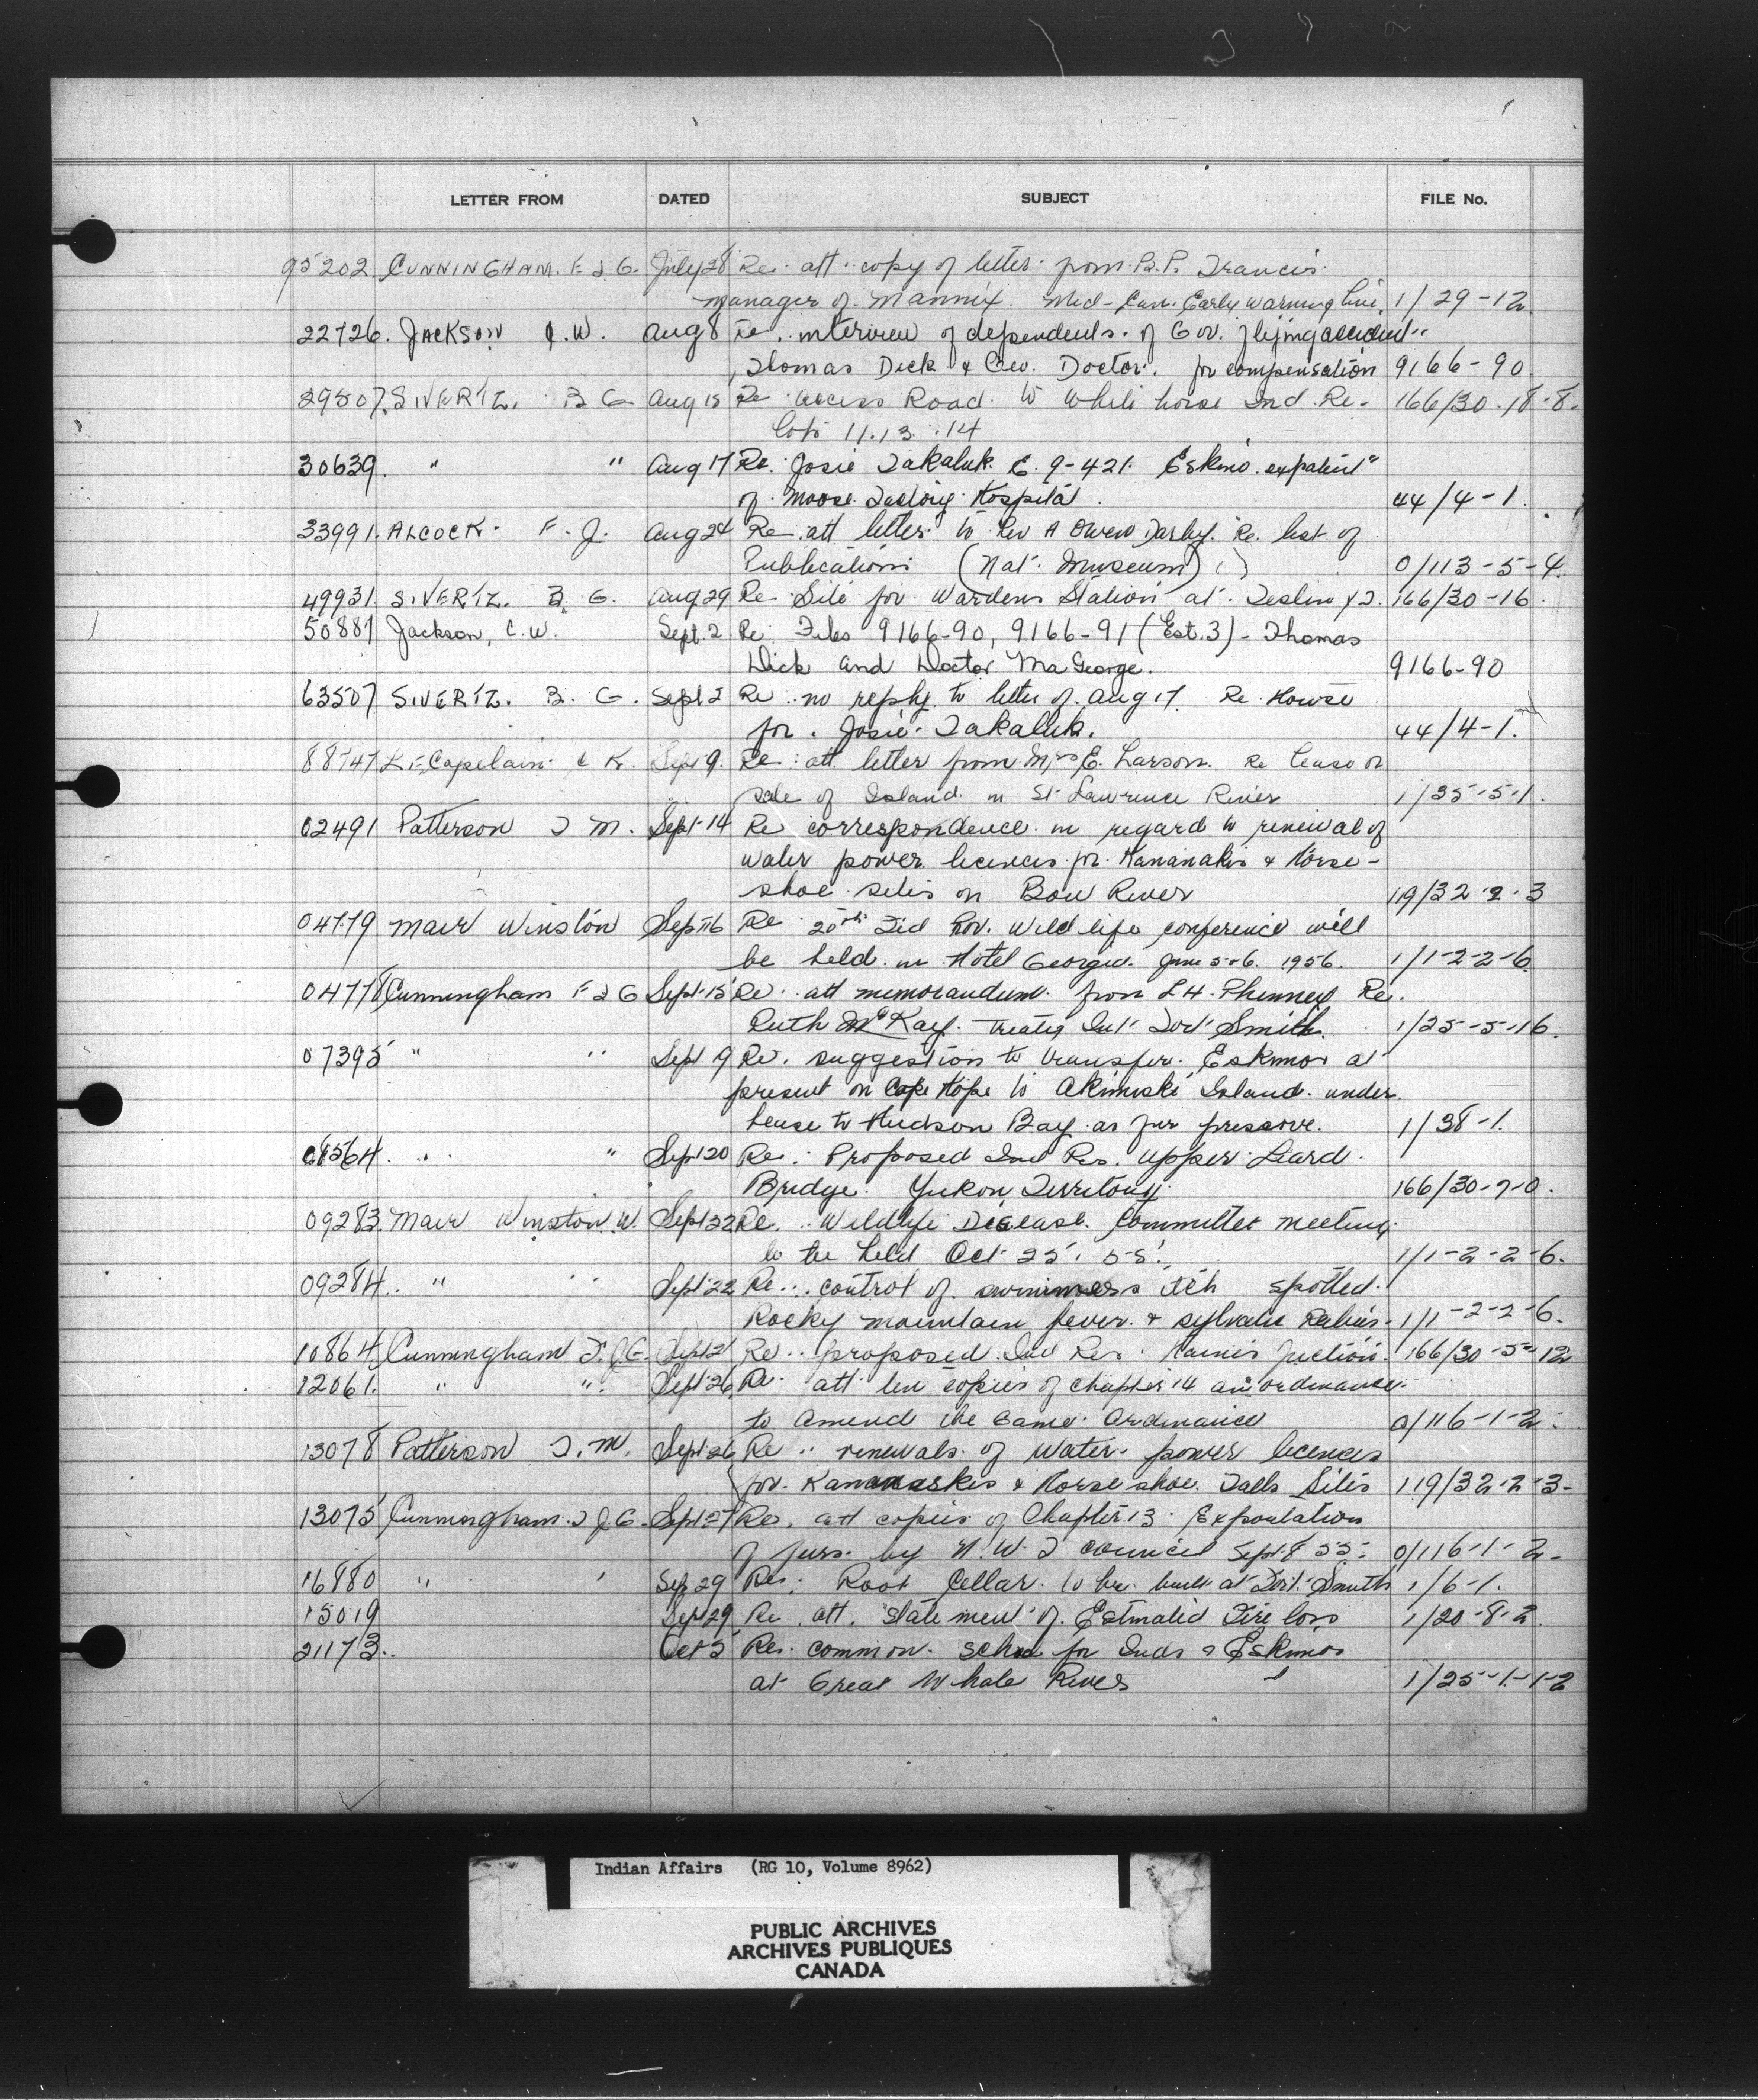 LETTER FROM DATED SUBJECT FILE No.
95202 CUNNINGHAM. F J G. July 28 Re att copy of letter from B.P. Francis
manager of Mannix. Mid-Can. Early Warning Line. 1/29-12
22726. JACKSON C.W. Aug 8 Re. interview of dependents of Gov. flying accident
Thomas Dick & Geo. Doctor. for compensation 9166-90
29507. SIVERTZ. B G Aug 15 Re access Road to White horse Ind Re- 166/30-18-8.
lots 11.13.14
30639. " " Aug 17 Re. Josie Takaluk. E. 9-421. Eskimo expatient
of Moose Factory Hospital. 44/4-1.
33991. ALCOCK. F. J. Aug 24 Re att letter to Rev A Owen Darby. Re. list of
Publications (Nat. Museum) 0/113-5-4.
49931. SIVERTZ. B. G. Aug 29 Re Site for Wardens Station at Teslin Y.T. 166/30-16.
50887 Jackson, C.W. Sept. 2 Re Files 9166-90, 9166-91 (Est. 3) - Thomas
Dick and Doctor Ma George. 9166-90
63507 SIVERTZ. B. G. Sept 2 Re no reply to letter of Aug 17. Re House
for Josie Takaluk. 44/4-1.
88747 LeCapelain C K. Sept 9. Re att letter from Mrs E. Larson. Re lease or
sale of Island in St Lawrence River 1/35-5-1.
02491 Patterson T M. Sept 14 Re correspondence in regard to renewal of
water power licences for Kananakis & Horse-
shoe sites on Bow River 119/32-2-3
04779 Mair Winston Sept 16 Re 20th Fed Prov. Wild life conference will
be held in Hotel Georgia. June 5-6. 1956. 1/1-2-2-6
04778 Cunningham F J G Sept 15 Re att memorandum from L H. Phinney Re.
Ruth McKay. Treaty Ind Fort Smith. 1/25-5-16.
07395 " " Sept 19 Re. suggestion to transfer Eskimos at
present on Cape Hope to Akimiski Island under
lease to Hudson Bay as fur preserve. 1/38-1.
08564. " " Sept 20 Re. Proposed Ind Res. Upper Liard
Bridge. Yukon Territory. 166/30-7-0.
09283. Mair Winston W. Sept 22 Re. Wildlife Disease Committee meeting
to be held Oct 25. 55. 1/1-2-2-6.
09284. " " Sept 22 Re. control of swimmers itch spotted
Rocky mountain fever & sylvatic Rabies. 1/1-2-2-6.
10864 Cunningham F.J.G. Sept 21 Re proposed Ind Res. Haines Juction. 166/30-5-12
12061. " " Sept 26 Re. att ten copies of chapter 14 an ordinance
to amend the Game Ordinance 0/116-1-2.
13078 Patterson T. M. Sept 26 Re renewals of water power licences
for Kananaskis & Horse shoe Falls Sites 119/32-2-3-
13075 Cunningham F J G. Sept 27 Re. att copies of Chapter 13 Exportation
of furs by N.W.T council Sept 8 55. 0/116-1-2-
16880 " ' Sep 29 Re. Root Cellar to be built at Fort Smith 1/6-1.
15019 Sept 29 Re. att. Statement of Estimated Fire loss 1/20-8-2.
21173. Oct 5 Re. common school for Inds & Eskimos
at Great Whale River 1/25-1-1-2
Indian Affairs (RG 10, Volume 8962)
PUBLIC ARCHIVES
ARCHIVES PUBLIQUES
CANADA